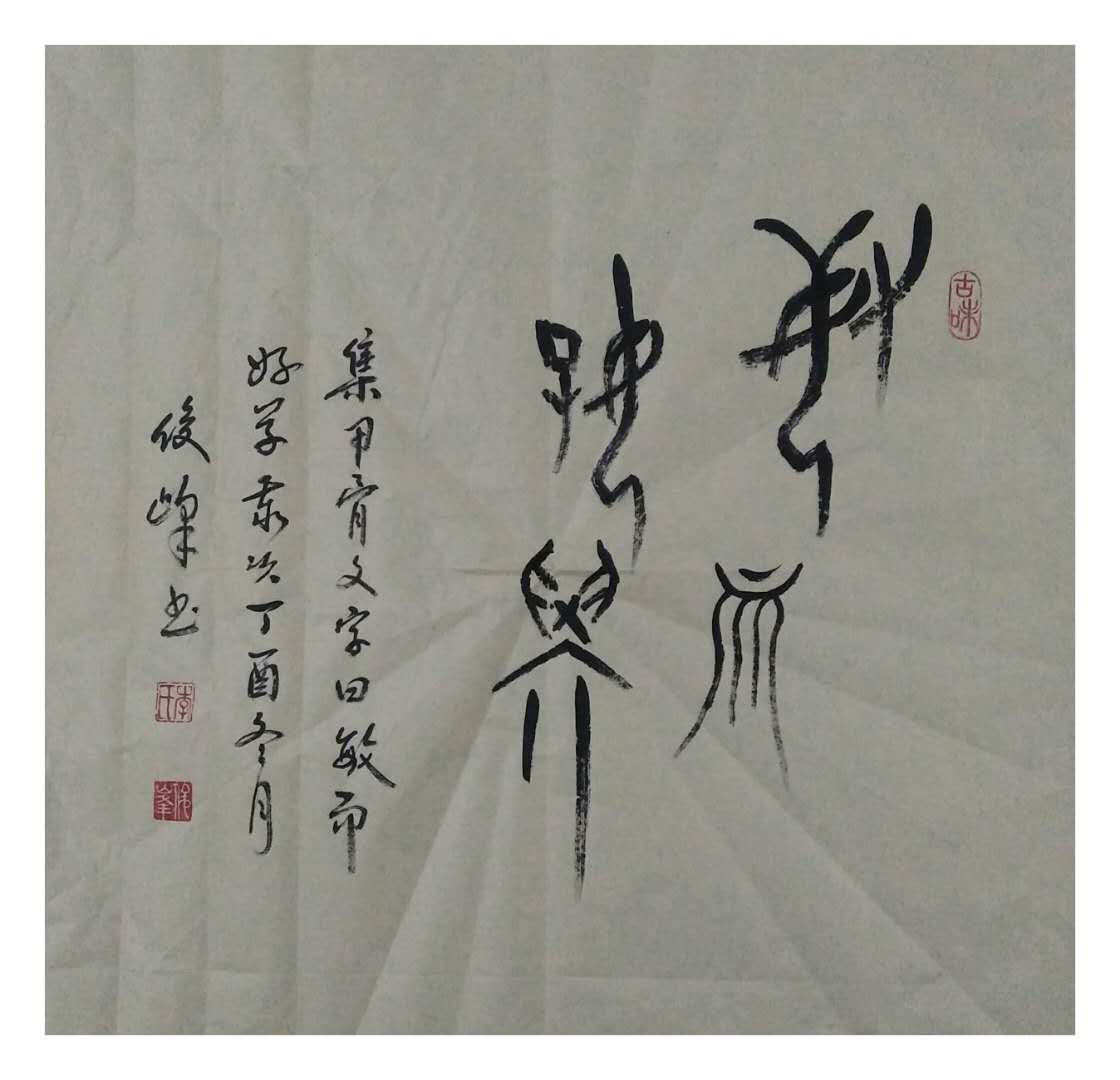 敏而
好學
集甲骨文字曰敏而
好学歲次丁酉冬月
俊峰书
古味
李氏
俊峰